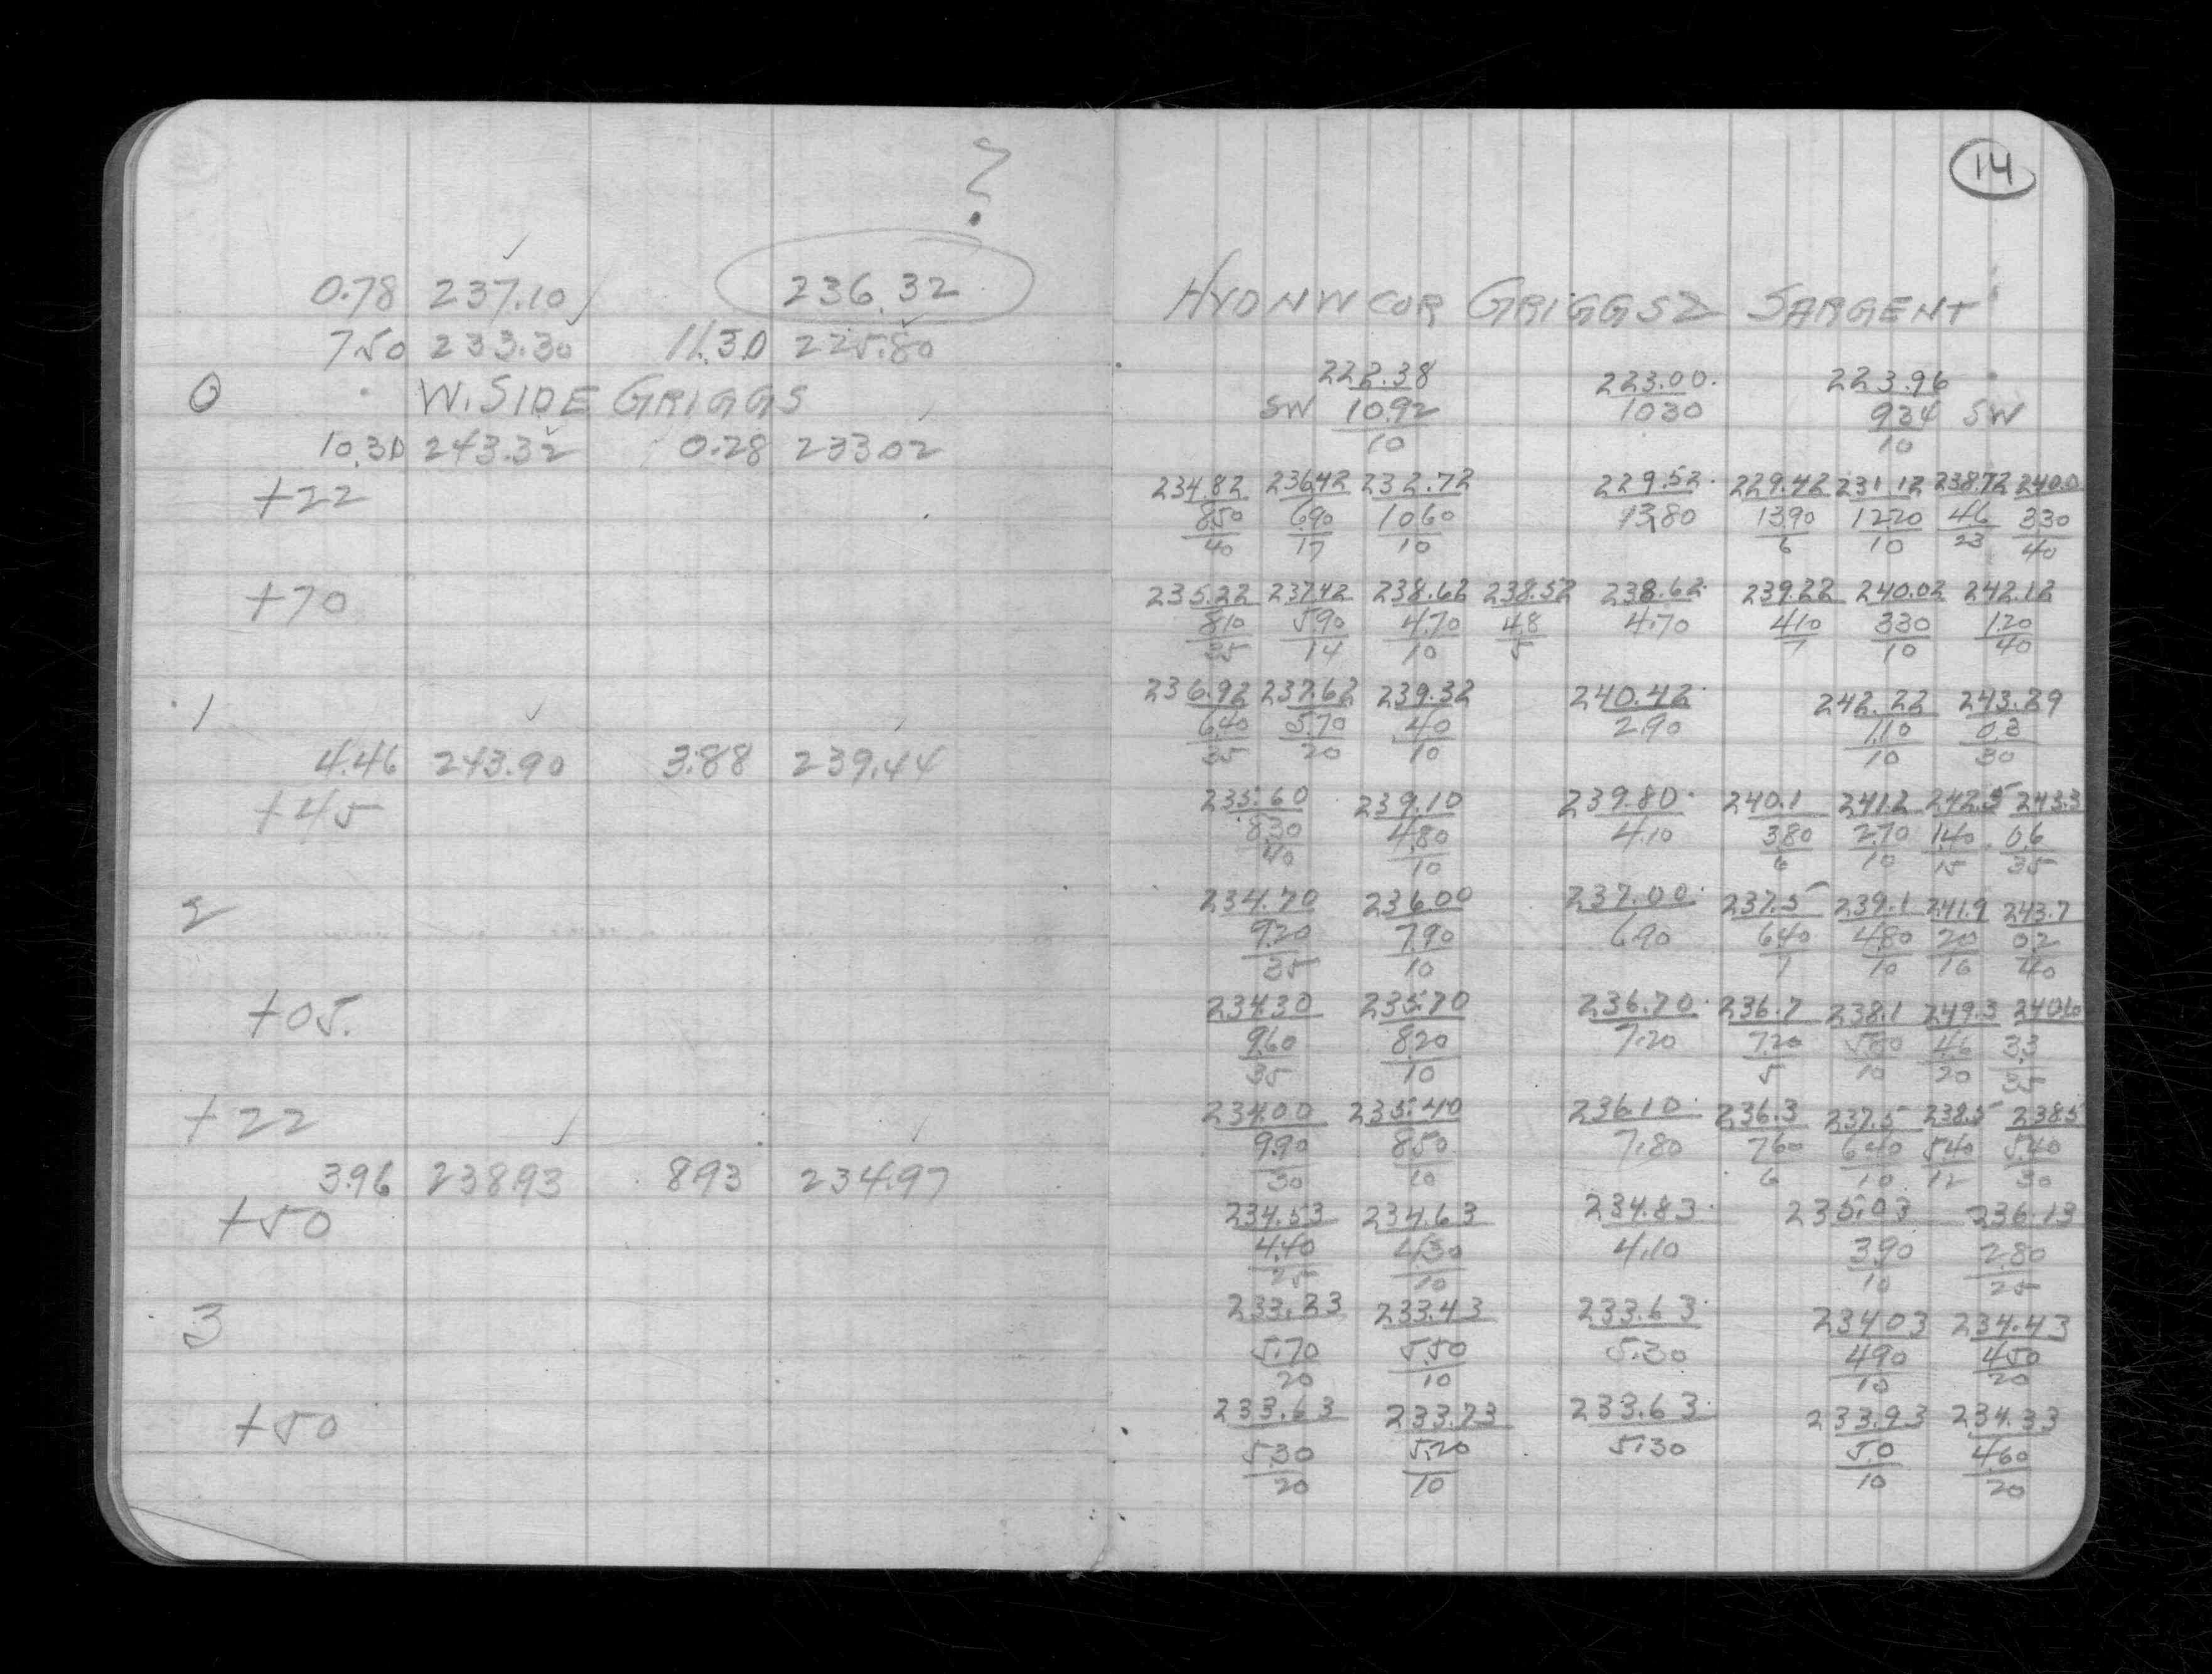 ?
0.78 237.10 236.32
7.50 233.30 11.30 225.80
0 W. SIDE GRIGGS
10.30 243.32 0.28 233.02
+22
+70
1
4.46 243.90 3.88 239.44
+45
2
+05.
+22
3.96 238.93 8.93 234.97
+50
3
+50
14
HYD NW COR GRIGGS & SARGENT
222.38 223.00 223.96
SW 10.92 10.30 9.34 SW
10 10
234.82 236.42 232.72 229.52 229.42 231.12 238.72 240.0
8.50 6.90 10.60 13.80 13.90 12.20 4.6 3.30
40 17 10 6 10 23 40
235.22 237.42 238.62 238.52 238.62 239.22 240.02 242.12
8.10 5.90 4.70 4.8 4.70 4.10 3.30 1.20
35 14 10 5 7 10 40
236.92 237.62 239.32 240.42 242.22 243.29
6.40 5.70 4.0 2.90 1.10 0.3
35 20 10 10 30
235.60 239.10 239.80 240.1 241.2 242.5 243.3
8.30 4.80 4.10 3.80 2.70 1.40 0.6
40 10 6 10 15 35
234.70 236.00 237.00 237.5 239.1 241.9 243.7
9.20 7.90 6.90 6.40 4.80 2.0 0.2
35 10 1 10 16 40
234.30 235.70 236.70 236.7 238.1 249.3 240.6
9.60 8.20 7.20 7.20 5.80 4.6 3.3
35 10 5 10 20 35
234.00 235.40 236.10 236.3 237.5 238.5 238.5
9.90 8.50 7.80 7.60 6.40 5.40 5.40
30 10 6 10 12 30
234.53 234.63 234.83 235.03 236.13
4.40 4.30 4.10 3.90 2.80
25 10 10 25
233.23 233.43 233.63 234.03 234.43
5.70 5.50 5.30 4.90 4.50
20 10 10 20
233.63 233.73 233.63 233.93 234.33
5.30 5.20 5.30 5.0 4.60
20 10 10 20